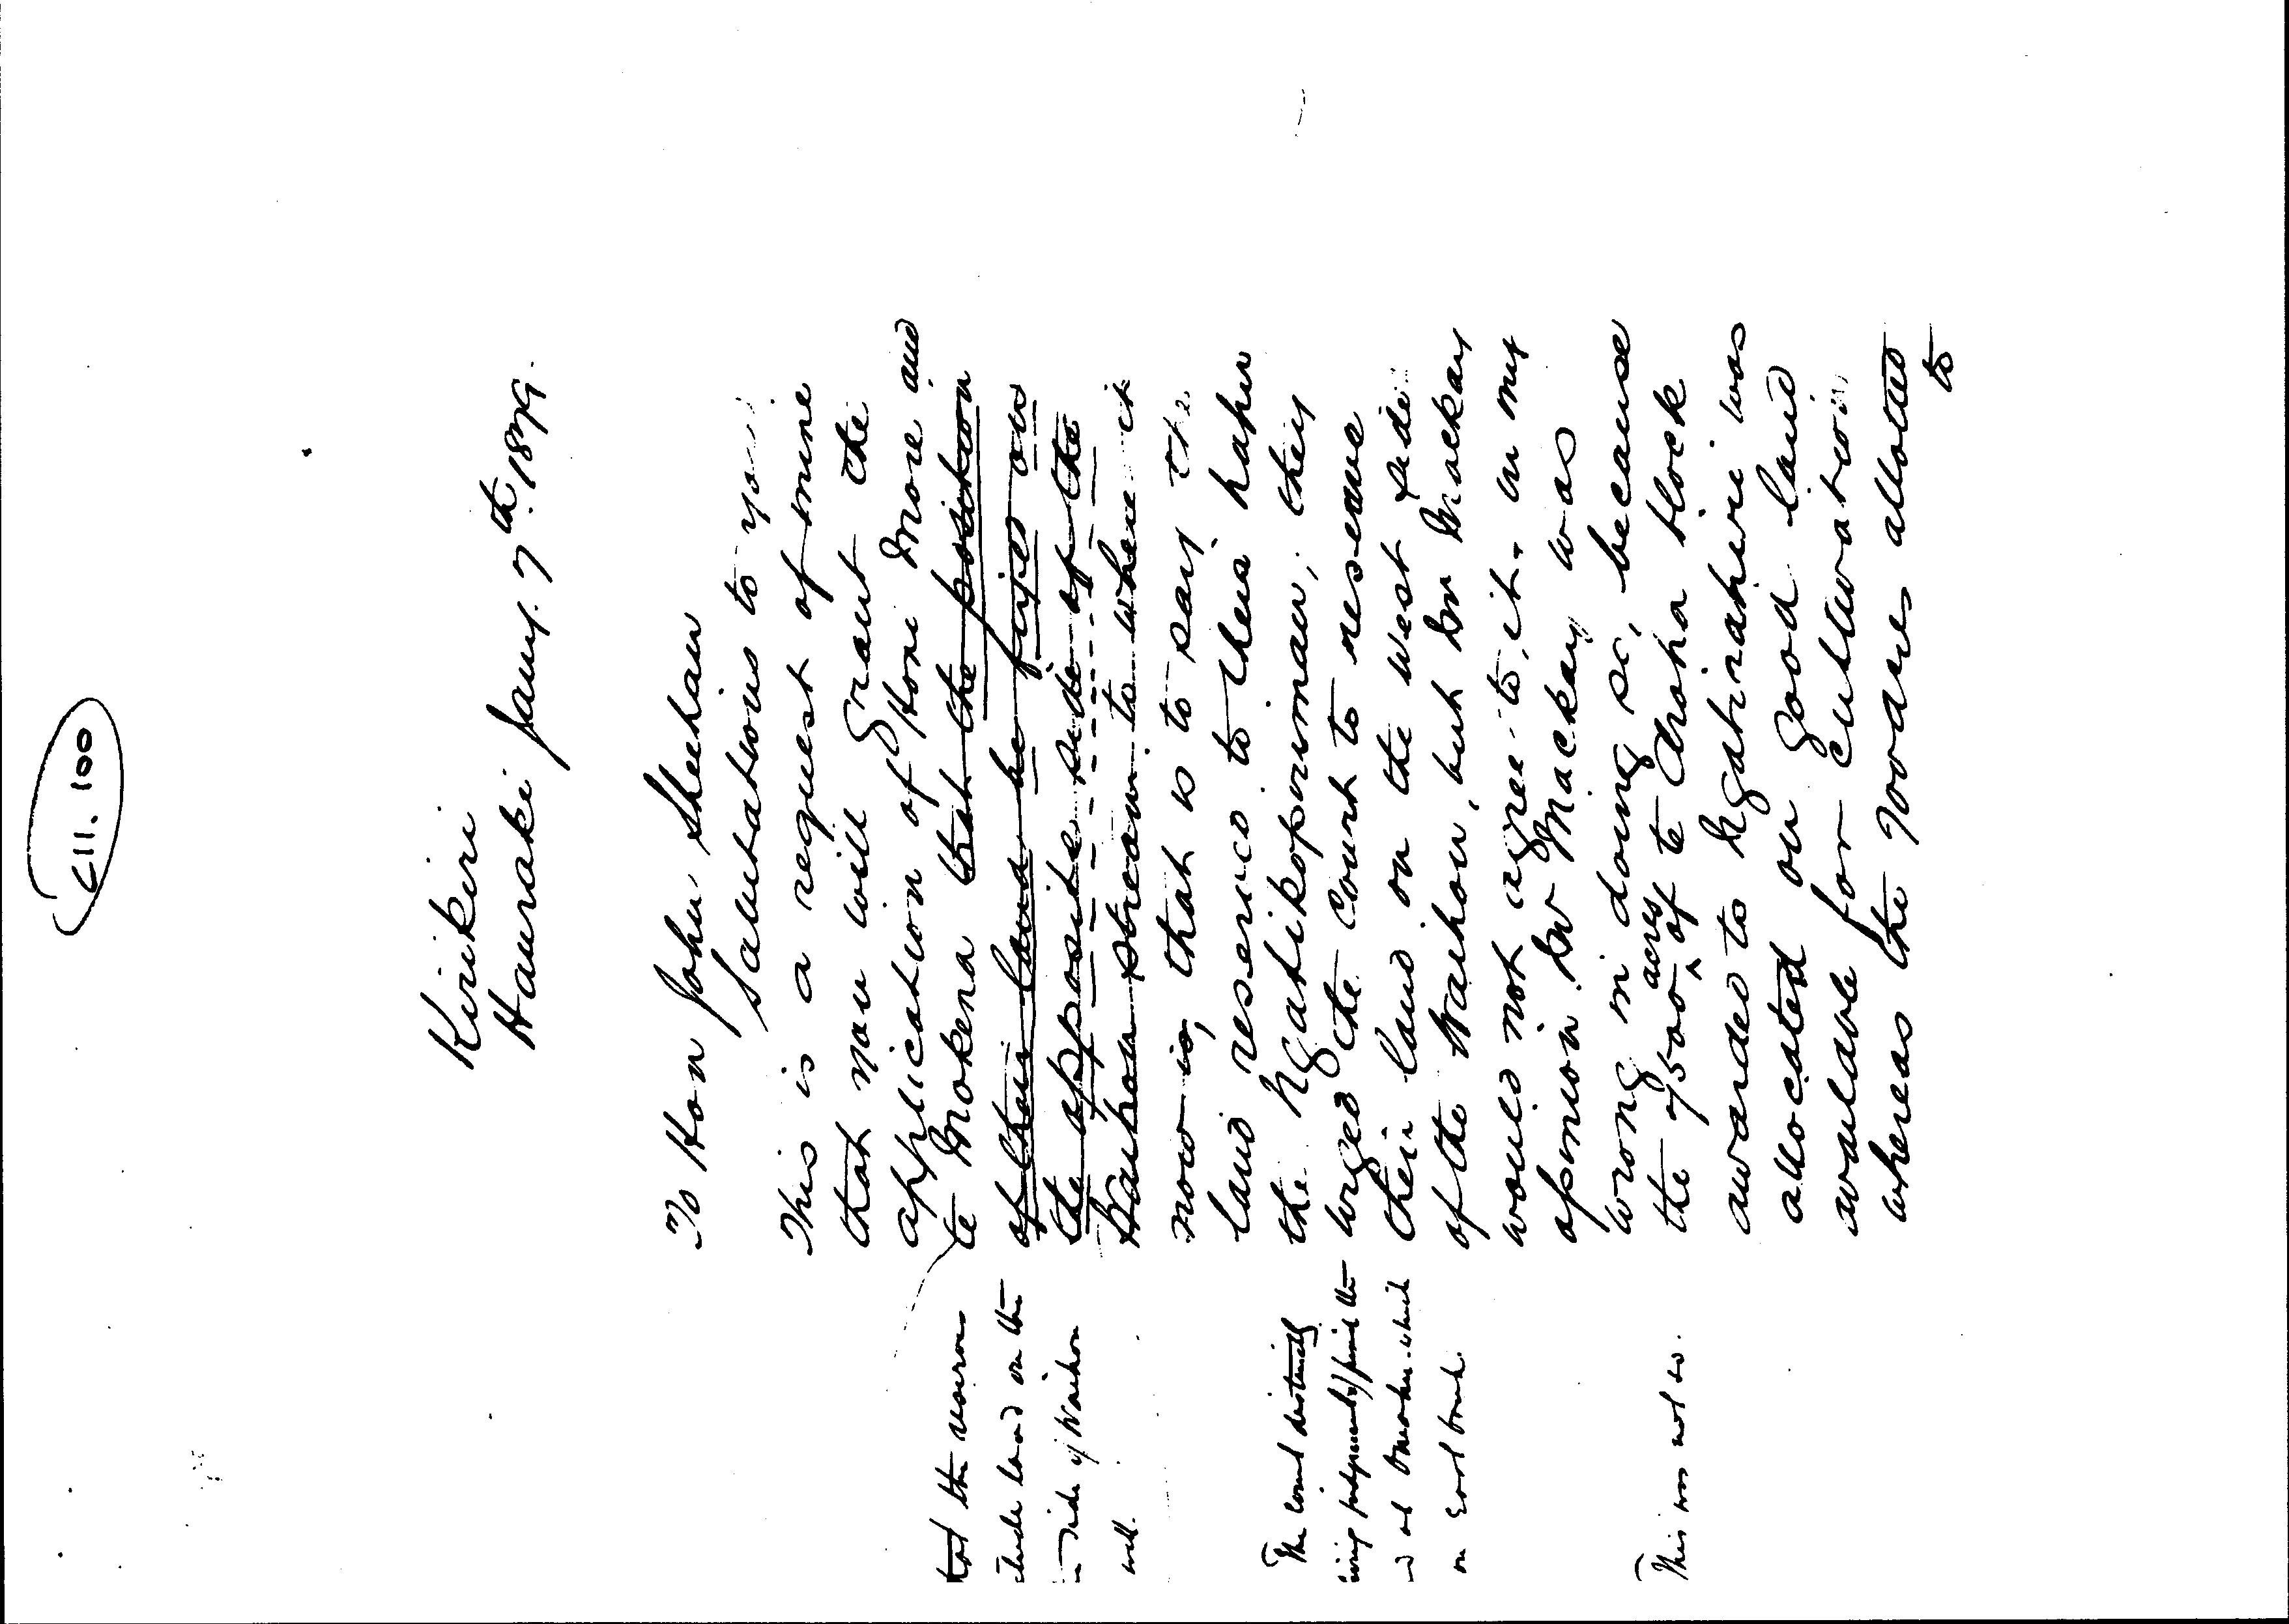 C11.100
Kirikiri
Hauraki Jany. 7th. 1879.
To Hon John Sheehan
Salutations to you
This is a request of mine
that you will grant the
application of Hone More and
te Mokena that the position
of their land be fixed on
the opposite side of the
Waihou stream to where it
now is, that is to say the
land reserved to them hapu
the Ngatikopirimau, they
urged the Court to reserve
their land on the West side
of the Waihou, but Mr Mackay
would not agree to it. in my
opinion Mr Mackay was
wrong in doing so, because
the 7500 acres of te Aroha block
awarded to Ngatirahiri was
allocated on good land
available for cultivation
whereas the 700 acres allotted
to
that the
land on the
side of Waihou
well.
The Court distinctly
judgment
at which
on East bank.
This was not so.